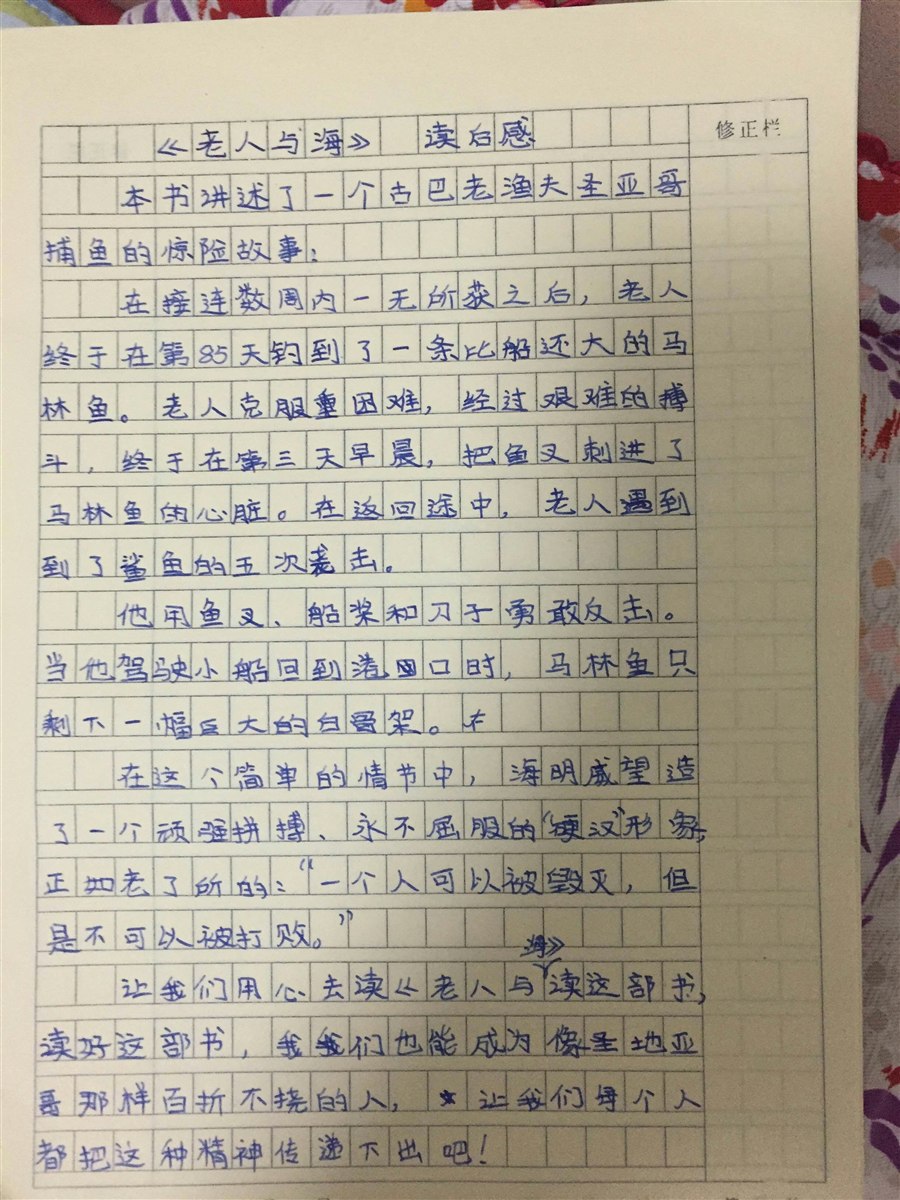 《老人与海》 读后感
修正栏
本书讲述了一个古巴老渔夫圣亚哥
捕鱼的惊险故事:
在接连数周内一无所获之后，老人
终于在第85天钓到了一条比船还大的马
林鱼。老人克服重困难，经过艰难的搏
斗，终于在第三天早晨，把鱼叉刺进了
马林鱼的心脏。在返回途中，老人遇到
到了鲨鱼的五次袭击。
他用鱼叉、船桨和刀子勇敢反击。
当他驾驶小船回到港口时，马林鱼只
剩下一幅巨大的白骨架。
在这个简单的情节中，海明威塑造
了一个顽强拼搏、永不屈服的“硬汉”形象，
正如老了所的：“一个人可以被毁灭，但
是不可以被打败。”
让我们用心去读《老人与海》读这部书，
读好这部书，我们也能成为像圣地亚
哥那样百折不挠的人，让我们每个人
都把这种精神传递下出吧！